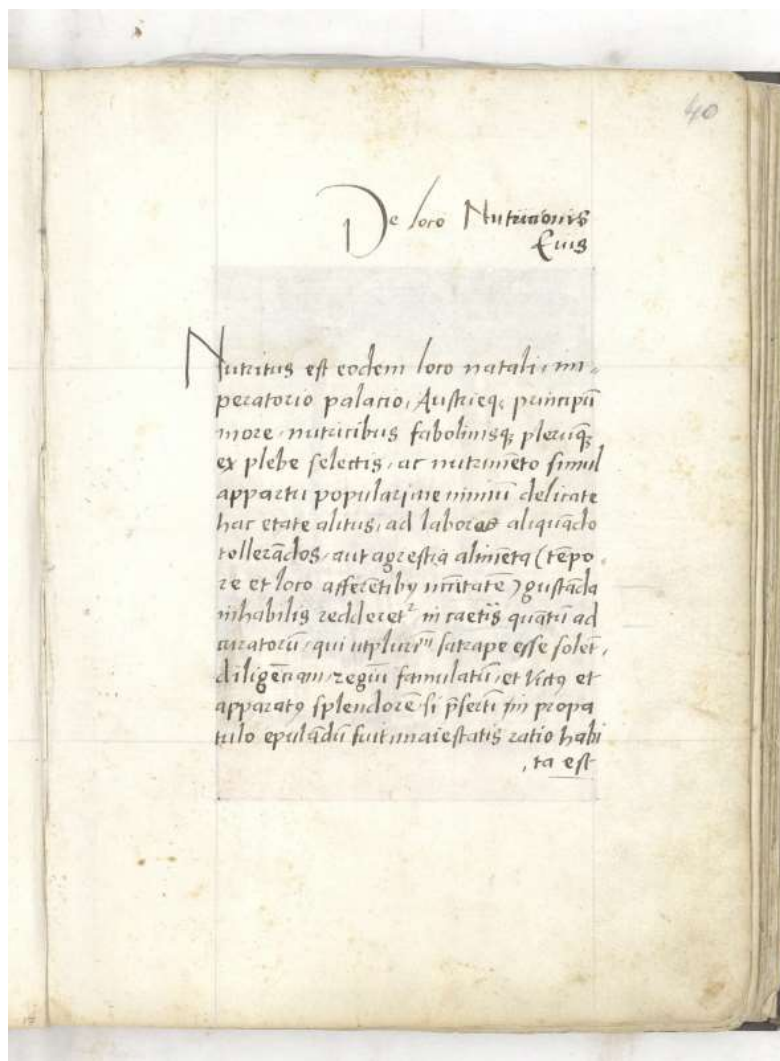 40
De loco Nutricionis
Eius
Nutritus est eodem loco natali, im-
peratorio palacio, Austrieq; principū
more, nutricibus fabolinisq; pleruq;
ex plebe selectis, ac nutrimēto simul
appartu populari, ne nimiū delicate
hac etate alitus, ad labores aliquādo
tollerādos, aut agrestia alimēta (tēpo
re et loco afferētibꝯ) gustāda
inhabilis redderet᷑ in caetis quātū ad
curatorū, qui utpluri selectio satrape esse solēt,
diligēciam, regiū famulatū, et victꝯ et
apparatꝯ splendorē, si p̄sertī in propa
tulo epulādū fuit, maiestatis ratio habi
ta est